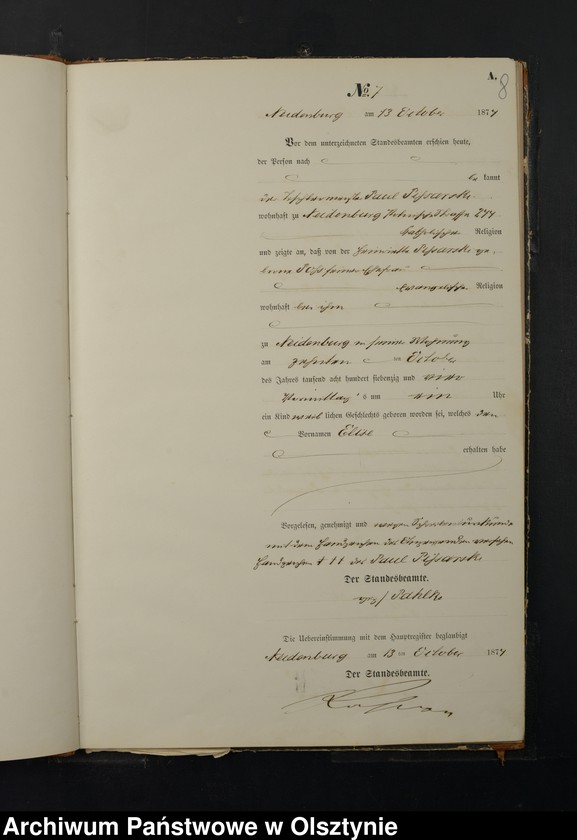 A.
8
No. 7
Neidenburg am 13 October 1874
Vor dem unterzeichneten Standesbeamten erschien heute,
der Persönlichkeit nach
be kannt
der Paul
wohnhaft zu Neidenburg 244
Religion
und zeigte an, daß von der Henriette
evangelischer Religion
wohnhaft bei ihm
zu Neidenburg in seiner Wohnung
am zehnten ten October
des Jahres tausend acht hundert siebenzig und vier
Vormittags um ein Uhr
ein Kind weib lichen Geschlechts geboren worden sei, welches den
Vornamen Elise
erhalten habe
Vorgelesen, genehmigt und wegen
mit dem Handzeichen des versehen
Handzeichen ††† des Paul
Der Standesbeamte.
gez/ Pahlke
Die Uebereinstimmung mit dem Hauptregister beglaubigt
Neidenburg am 13 ten October 1874
Der Standesbeamte.
Archiwum Państwowe w Olsztynie